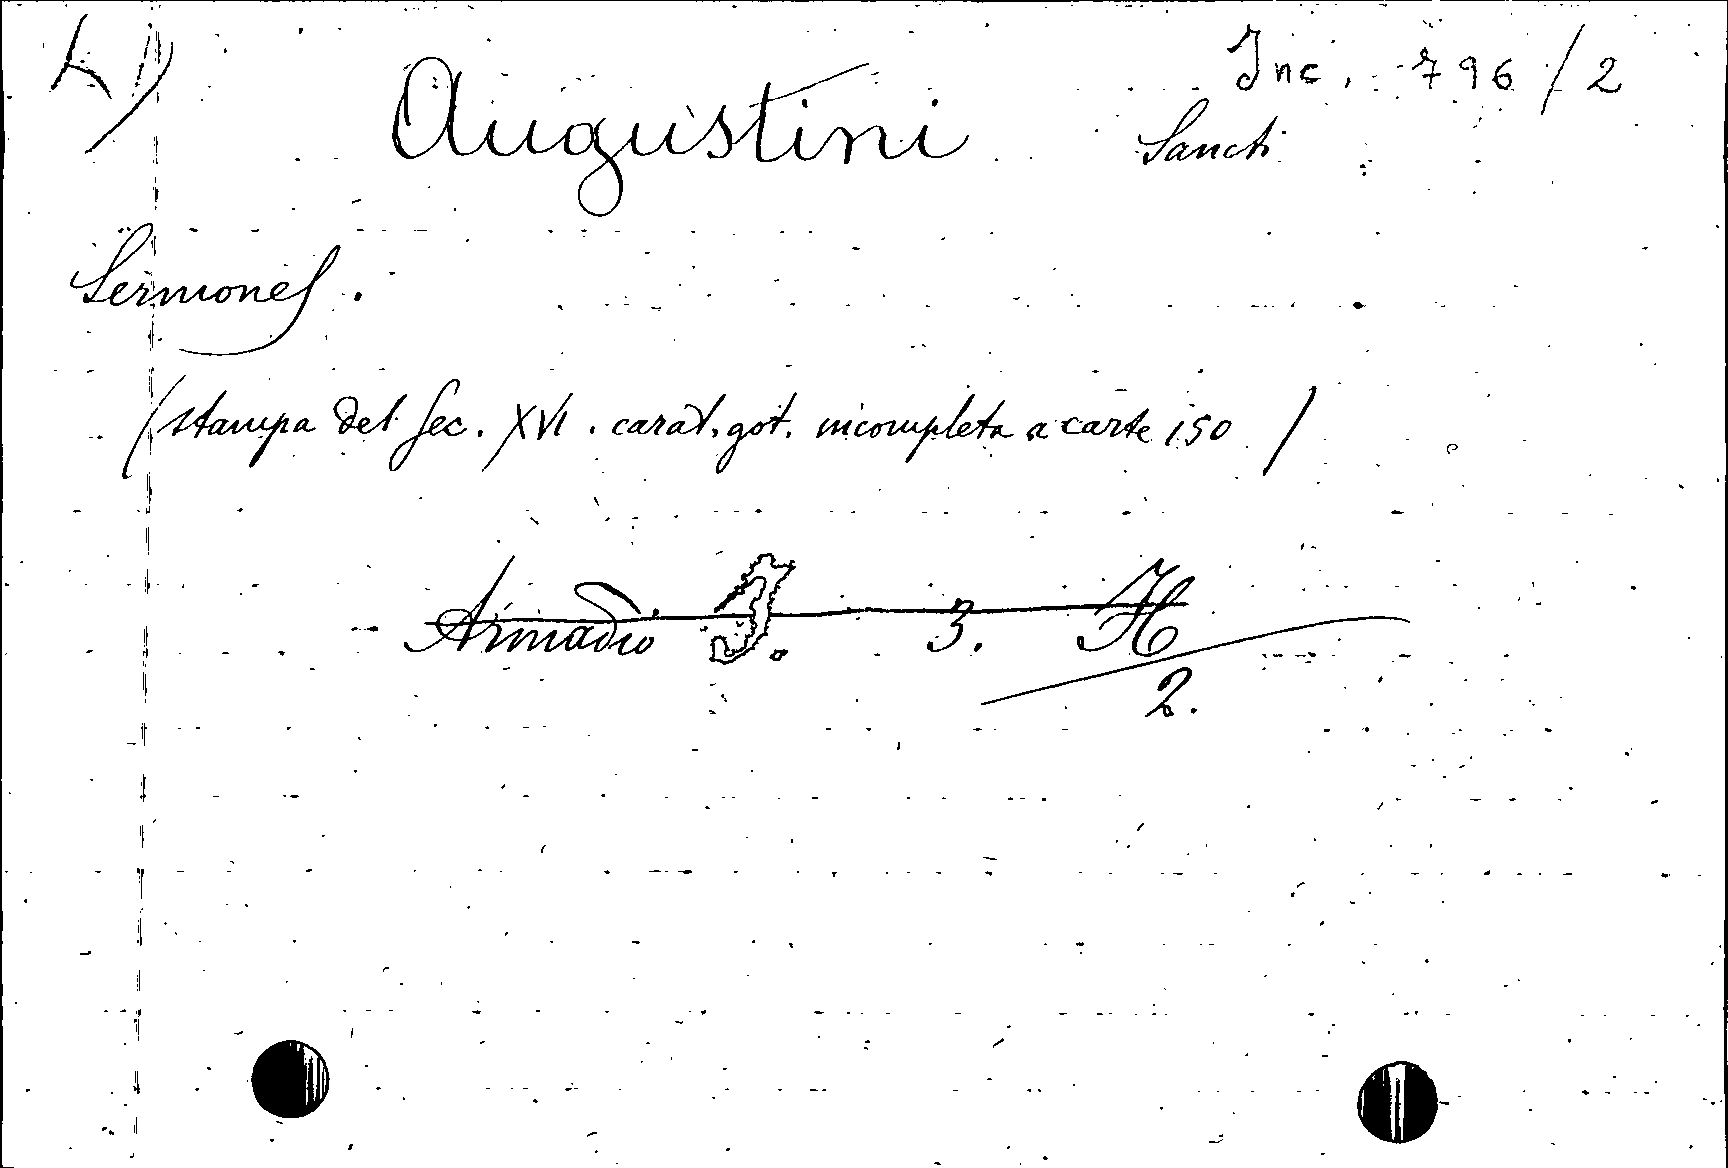 Inc. 796/2
Augustini Sancti
Sermones.
(stampa del sec. XVI. carat. got. incompleta a carte 150)
Armadio I. 3. H
2.